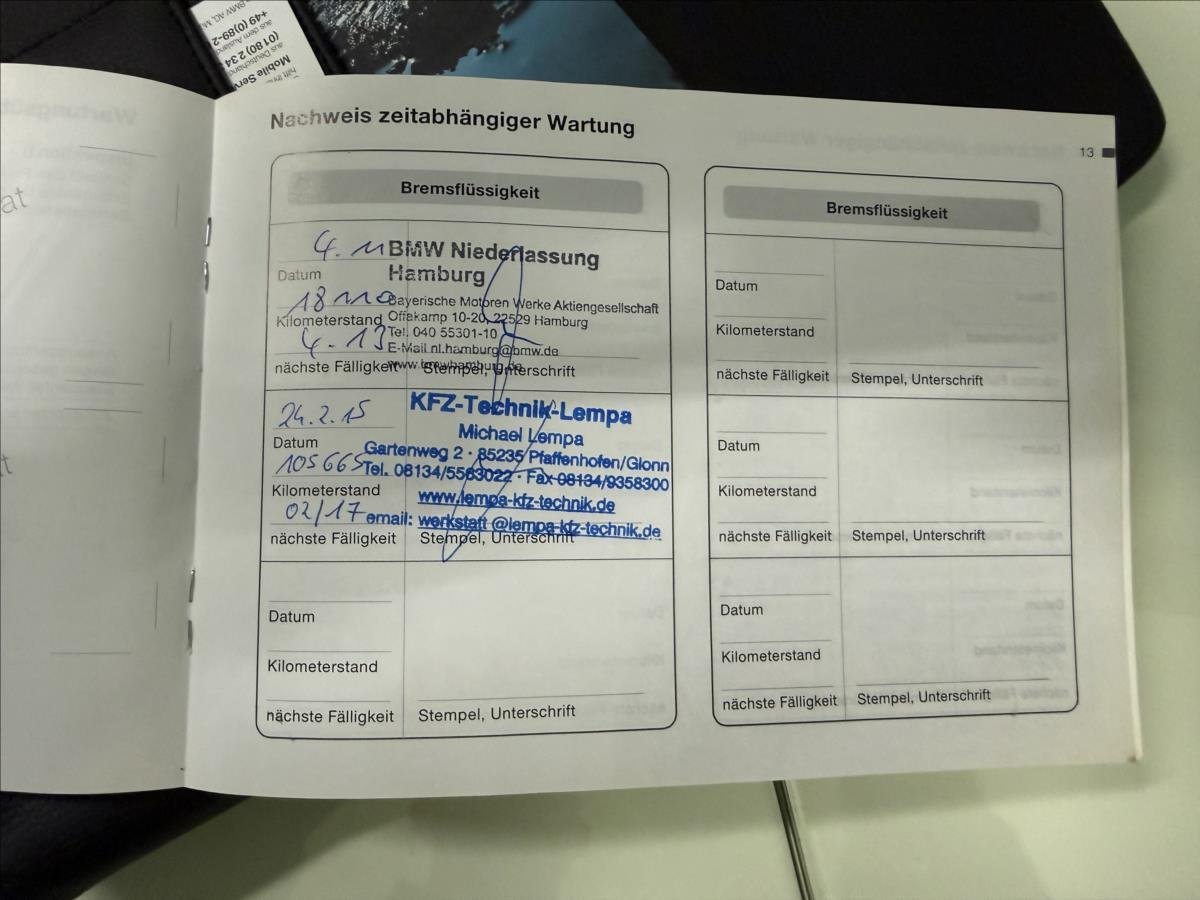 BMW AG, M
+49 (0)89-2
aus dem Ausland
(01 80) 2 34
aus Deutschland
Mobile Serv
Nachweis zeitabhängiger Wartung
13
Bremsflüssigkeit
4. 11
BMW Niederlassung
Hamburg
Datum
18110
Bayerische Motoren Werke Aktiengesellschaft
Offakamp 10-20, 22529 Hamburg
Kilometerstand
Tel. 040 55301-10
4. 13
E-Mail nl.hamburg@bmw.de
www.bmwhamburg.de
nächste Fälligkeit
Stempel, Unterschrift
24.2.15
KFZ-Technik-Lempa
Michael Lempa
Datum
Gartenweg 2 · 85235 Pfaffenhofen/Glonn
105665
Tel. 08134/5563022 · Fax 08134/9358300
Kilometerstand
www.lempa-kfz-technik.de
02/17
email: werkstatt @lempa-kfz-technik.de
nächste Fälligkeit
Stempel, Unterschrift
Datum
Kilometerstand
nächste Fälligkeit
Stempel, Unterschrift
Bremsflüssigkeit
Datum
Kilometerstand
nächste Fälligkeit
Stempel, Unterschrift
Datum
Kilometerstand
nächste Fälligkeit
Stempel, Unterschrift
Datum
Kilometerstand
nächste Fälligkeit
Stempel, Unterschrift